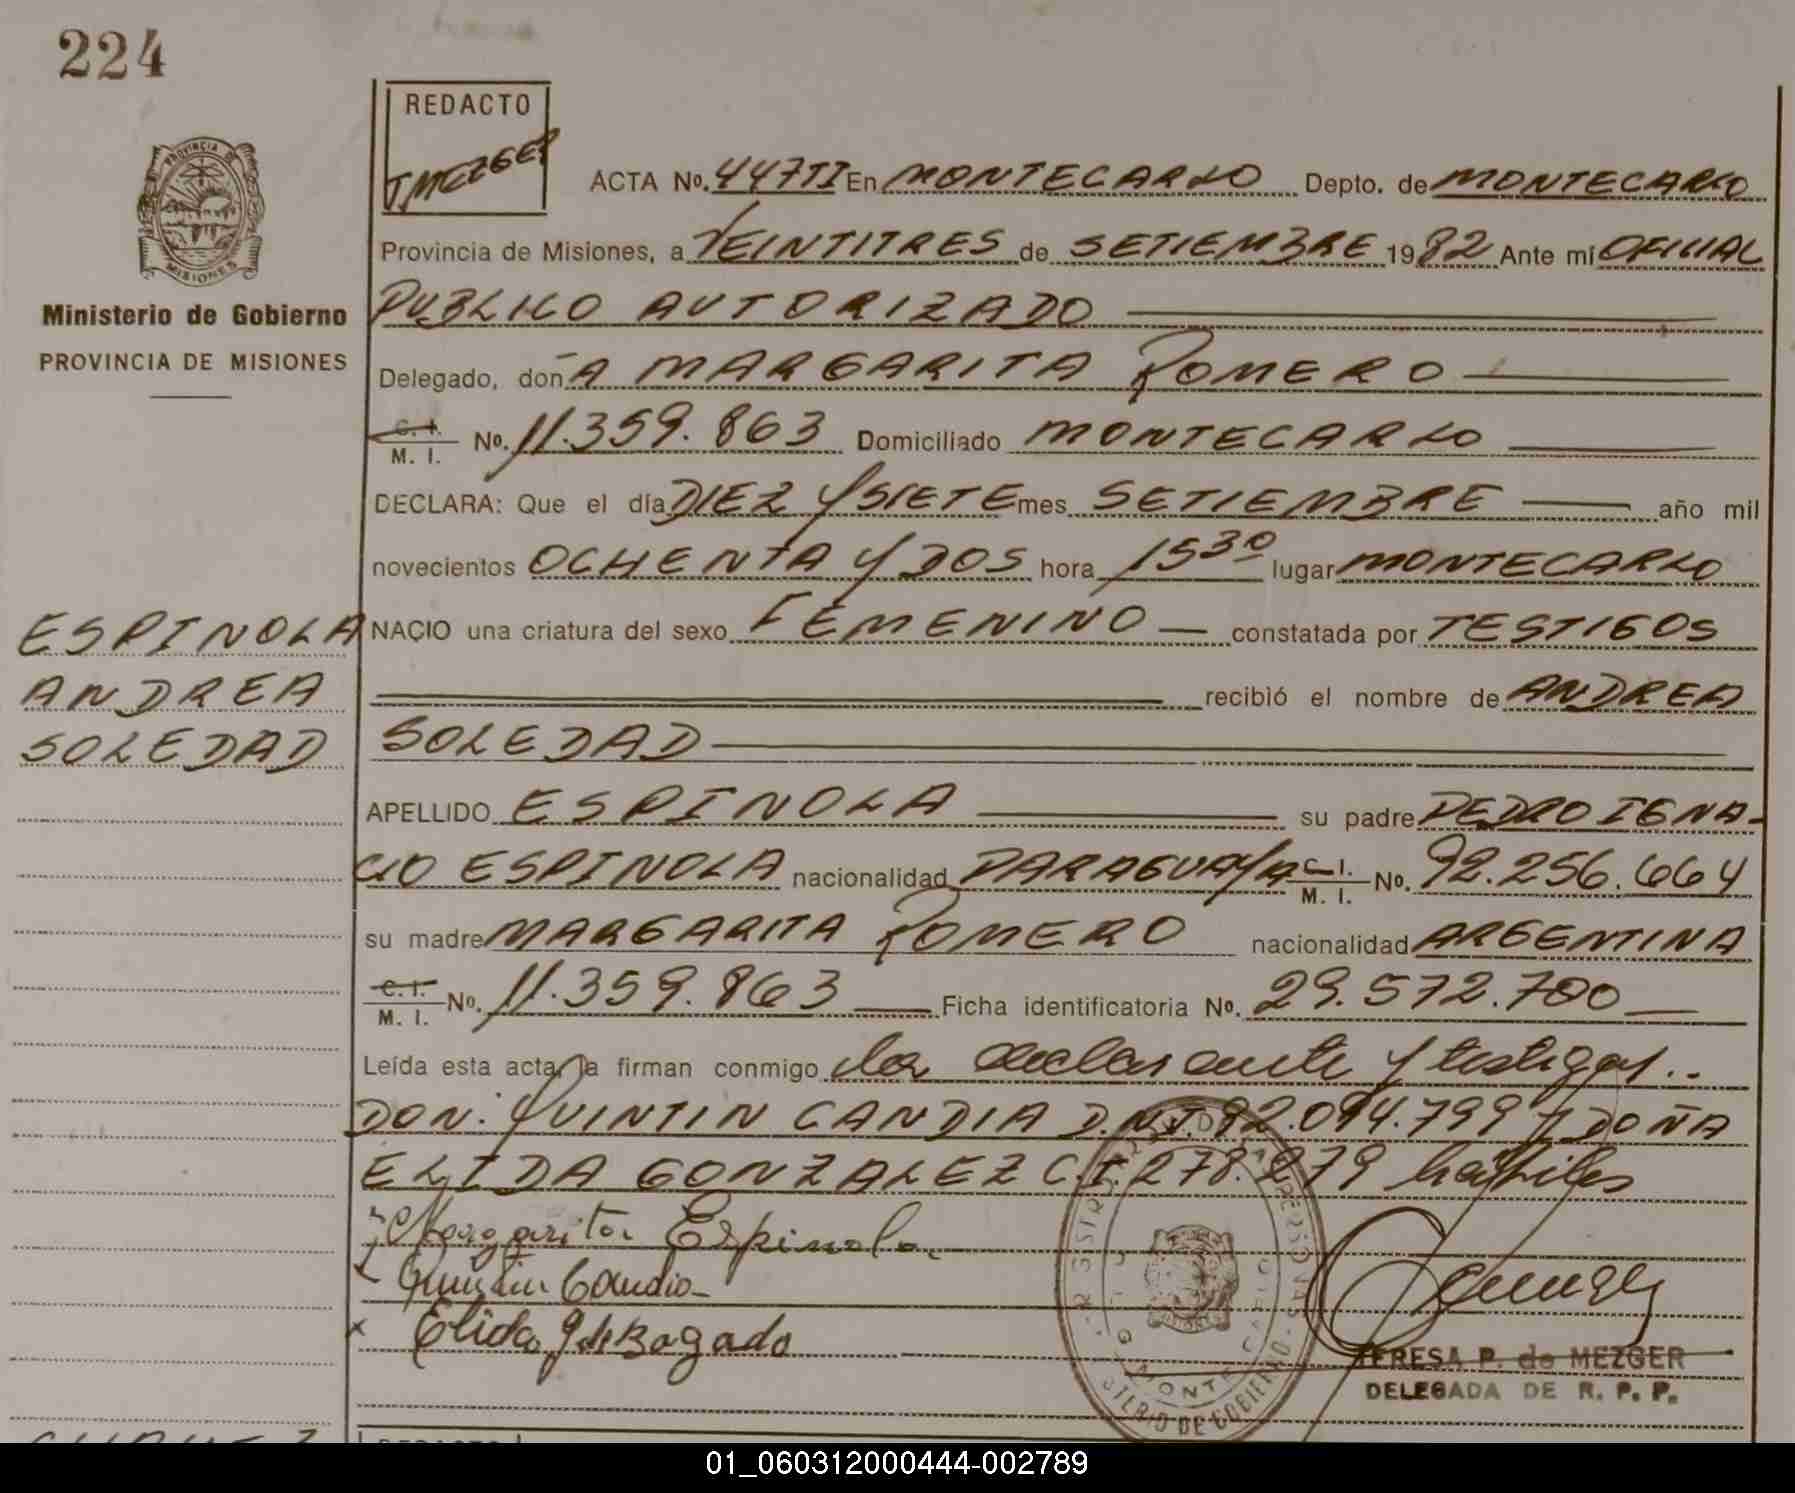 224
REDACTO
T. MEZGER
PROVINCIA DE
MISIONES
Ministerio de Gobierno
PROVINCIA DE MISIONES
ACTA No. 447TII En MONTECARLO Depto. de MONTECARLO
Provincia de Misiones, a VEINTITRES de SETIEMBRE 1982 Ante mí OFICIAL
PUBLICO AUTORIZADO
Delegado, donA MARGARITA ROMERO
C. I.
M. I. No. 11.359.863 Domiciliado MONTECARLO
DECLARA: Que el día DIEZ Y SIETE mes SETIEMBRE año mil
novecientos OCHENTA Y DOS hora 15 30 lugar MONTECARLO
ESPINOLA
ANDREA
SOLEDAD
NACIO una criatura del sexo FEMENINO constatada por TESTIGOS
recibió el nombre de ANDREA
SOLEDAD
APELLIDO ESPINOLA su padre PEDRO IGNA-
CIO ESPINOLA nacionalidad PARAGUAYA C. I. No. 92.256.664
M. I.
su madre MARGARITA ROMERO nacionalidad ARGENTINA
C. I.
M. I. No. 11.359.863 Ficha identificatoria No. 29.572.700
Leída esta acta, la firman conmigo la declarante y testigos..
DON: QUINTIN CANDIA D.N.I. 92.094.799 Y DOÑA
ELIDA GONZALEZ C.I 278.279 hábiles
Margarita Espinola
Quintin Candia
Elida G de Bogado
MONTECARLO
TERESA P. de MEZGER
DELEGADA DE R. P. P.
01_060312000444-002789